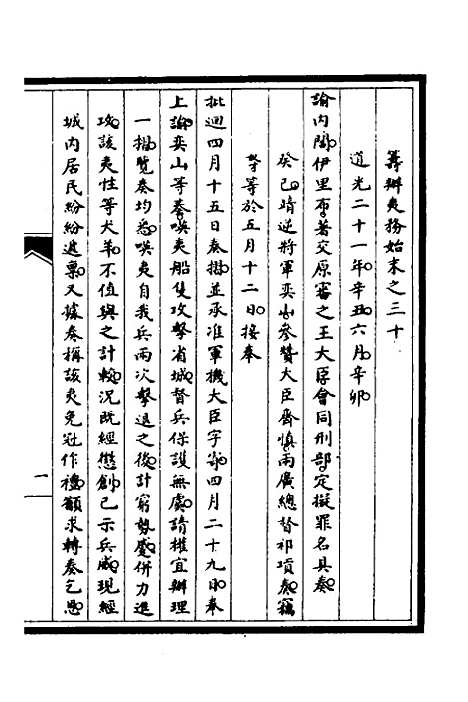 籌辦夷務始末之三十
道光二十一年辛丑六月辛卯
諭內閣伊里布著交原審之王大臣會同刑部定擬罪名具奏
癸巳靖逆將軍奕山參贊大臣齊慎兩廣總督祁𡎴奏竊
等於五月十二日接奉
批迴四月十五日奏摺並承准軍機大臣字寄四月二十九日奉
上諭奕山等奏㗸夷船隻攻擊省城督兵保護無虞請權宜辦理
一摺覽奏均悉㗸夷自我兵兩次擊退之後計窮勢蹙併力進
攻該夷性等犬羊不值與之計較況既經懲創已示兵威現經
城內居民紛紛遞稟又據奏稱該夷免冠作禮籲求轉奏乞恩
一